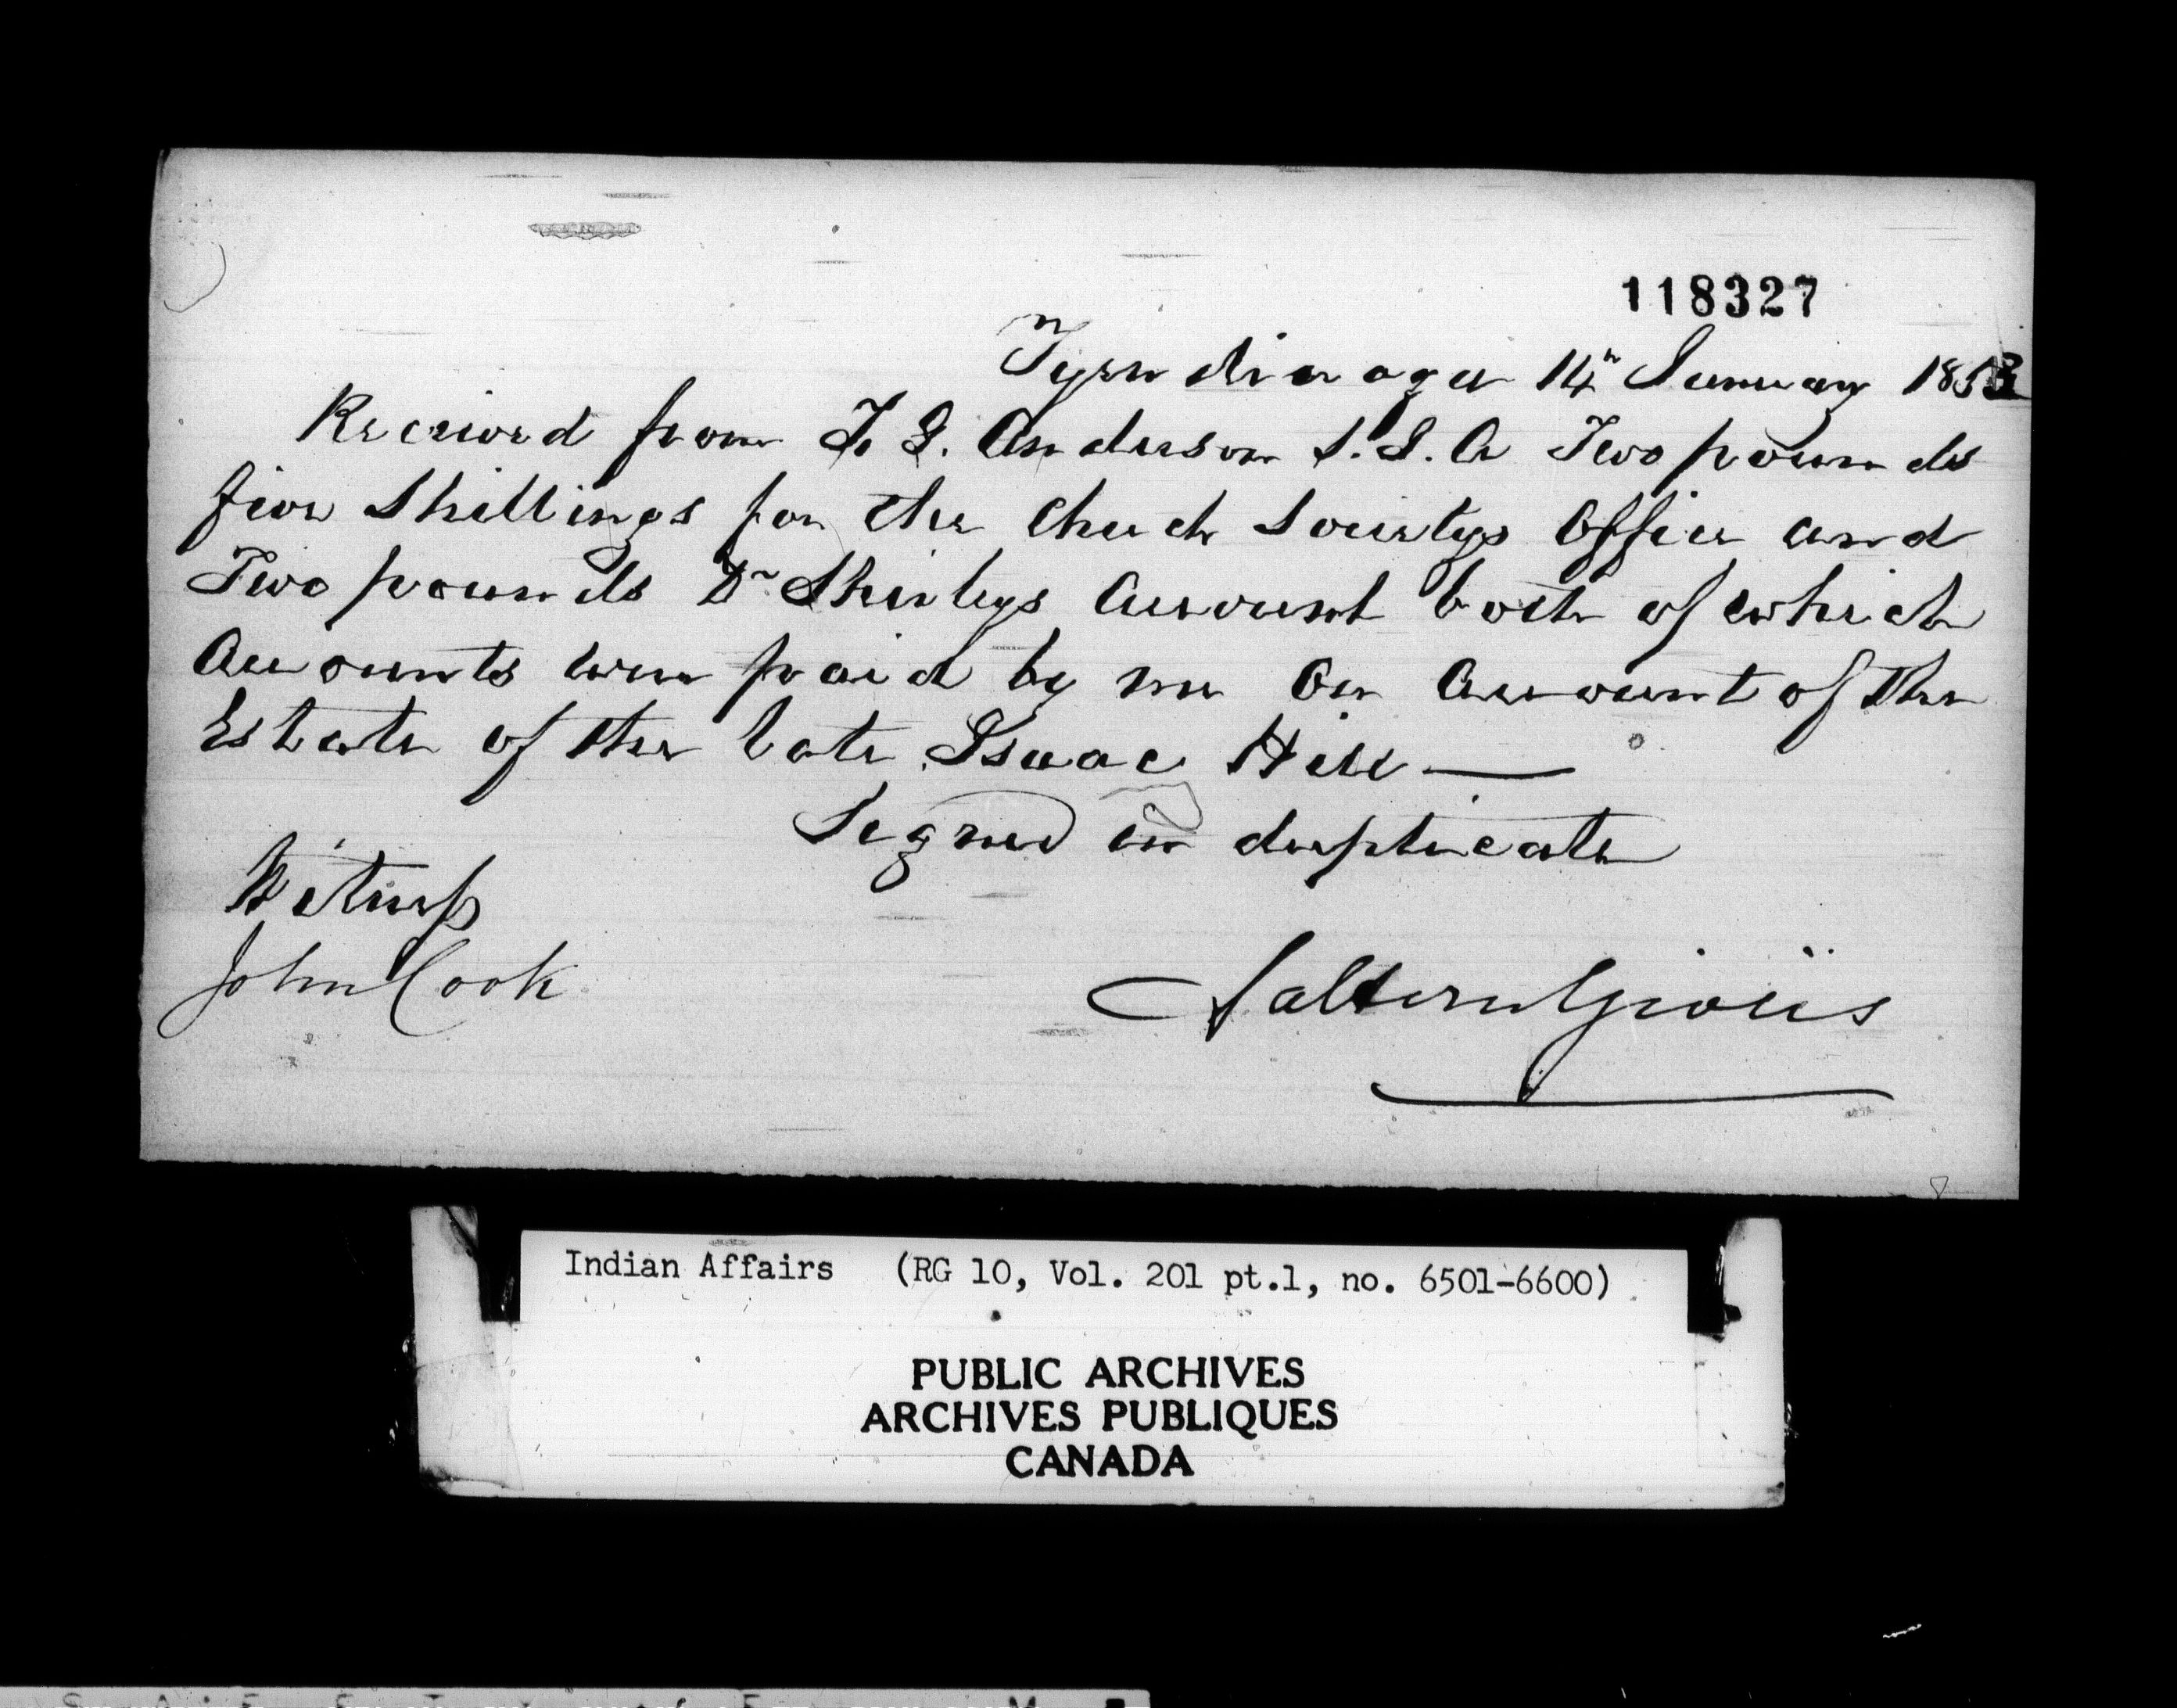 118327
Tyendinaga 14th January 1853
Received from T. G. Anderson S.I.A Two pounds
five Shillings for the Chuch Societys Office and
Two pounds Dr Shirleys Account both of which
Accounts were paid by me on Account of the
Estate of the late Isaac Hill —
Signed in duplicate
Witness
John Cook
Saltern Givins
Indian Affairs (RG 10, Vol. 201 pt.1, no. 6501-6600)
PUBLIC ARCHIVES
ARCHIVES PUBLIQUES
CANADA